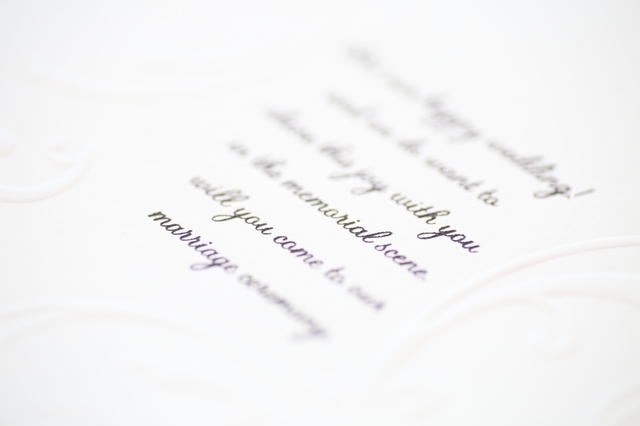 happy wedding!
and we do want to
share this joy with you
in the memorial scene.
will you come to our
marriage ceremony